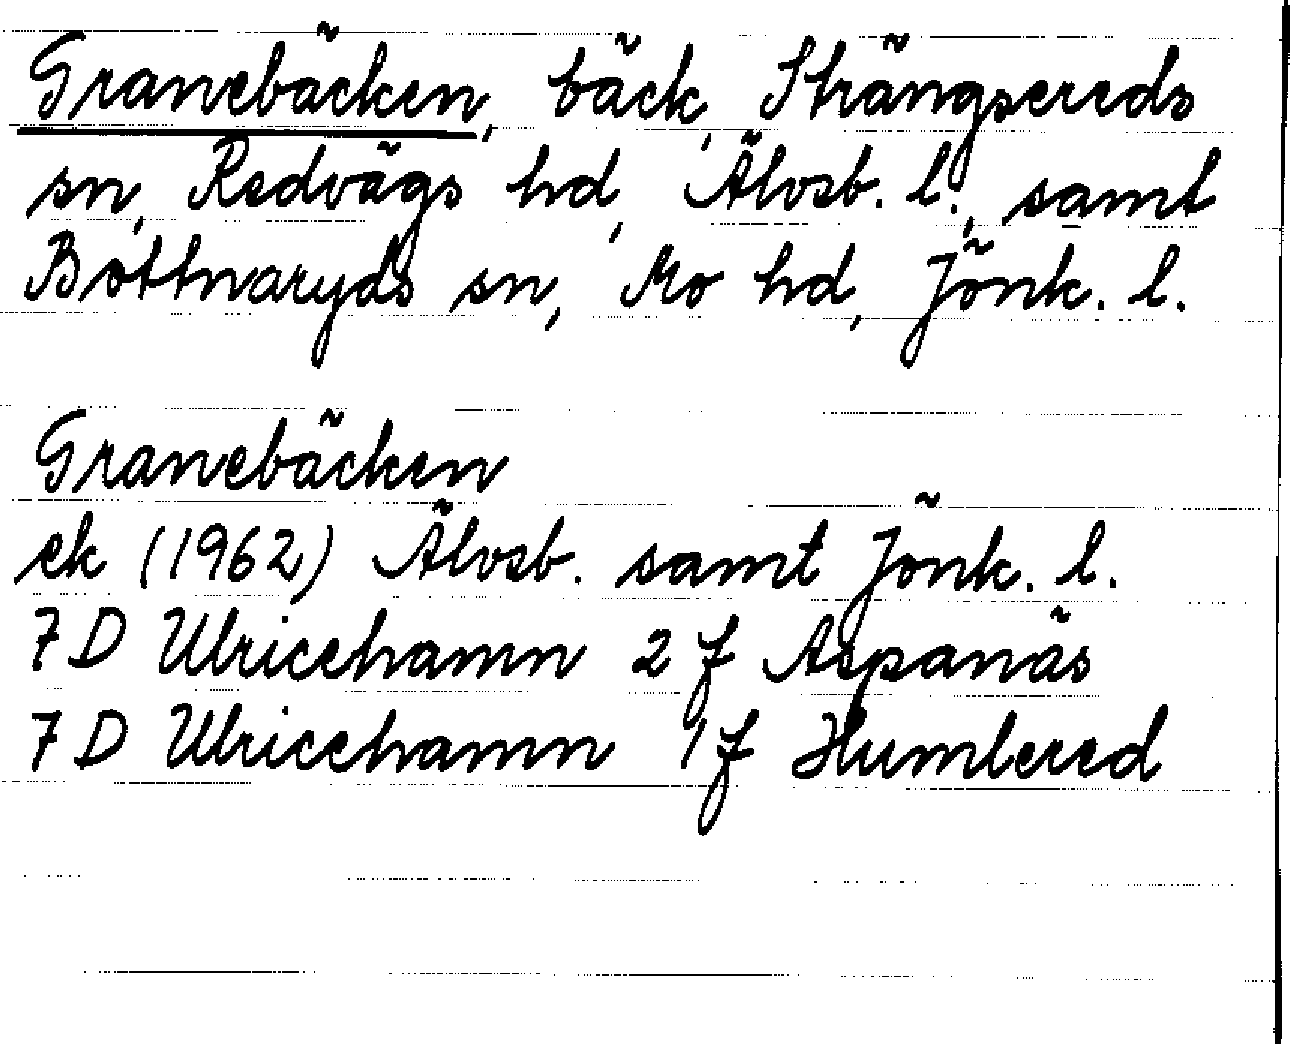 Granebäcken, bäck, Strängsereds
sn, Redvägs hd, Älvsb. l., samt
Bottnaryds sn, Mo hd, Jönk. l.
Granebäcken
ek (1962) Älvsb. samt Jönk. l.
7D Ulricehamn 2f Aspanäs
7D Ulricehamn 1f Humlered